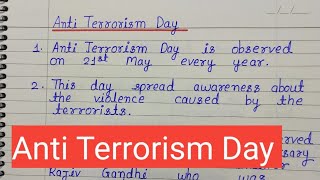 Anti Terrorism Day
1. Anti Terrorism Day is observed
on 21st May every year.
2. This day spread awareness about
the violence caused by the
terrorists.
Anti Terrorism Day
Gandhi who was